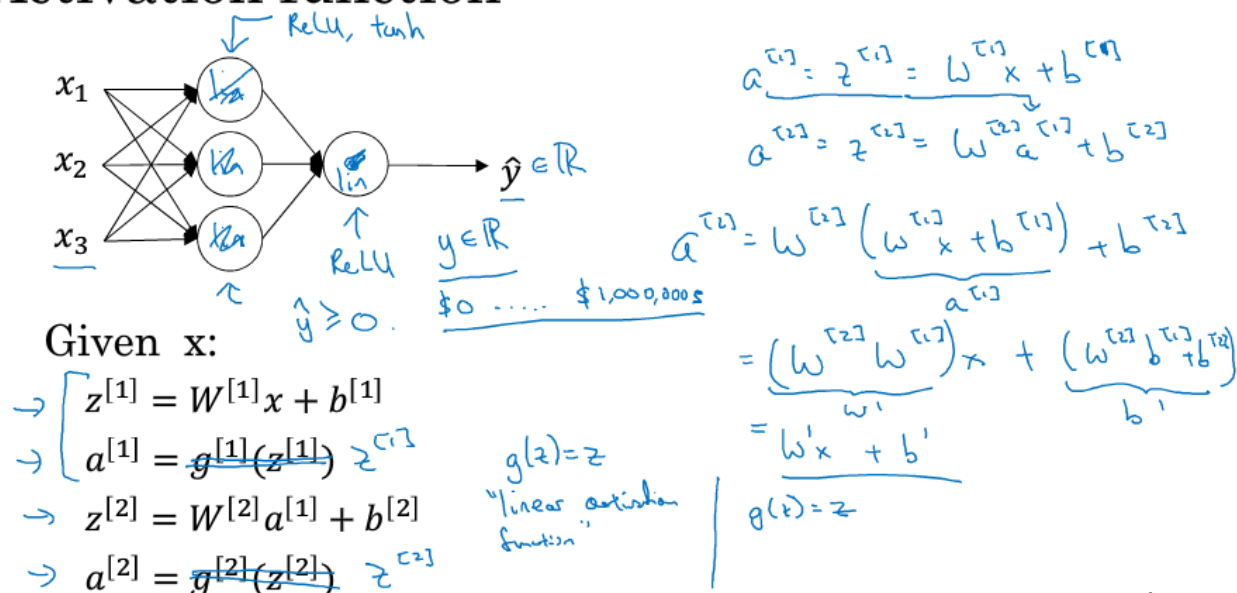 ReLU, tanh
x₁
x₂
x₃
lin
ŷ ∈ ℝ
ReLU
ŷ ≥ 0.
y ∈ ℝ
$0 ..... $1,000,000s
Given x:
→ z^[1] = W^[1]x + b^[1]
→ a^[1] = g^[1](z^[1]) z^[1]
→ z^[2] = W^[2]a^[1] + b^[2]
→ a^[2] = g^[2](z^[2]) z^[2]
g(z) = z
"linear activation
function"
a^[1] = z^[1] = W^[1]x + b^[1]
a^[2] = z^[2] = W^[2]a^[1] + b^[2]
a^[2] = W^[2](W^[1]x + b^[1]) + b^[2]
a^[1]
= (W^[2]W^[1])x + (W^[2]b^[1] + b^[2])
W' b'
= W'x + b'
g(z) = z